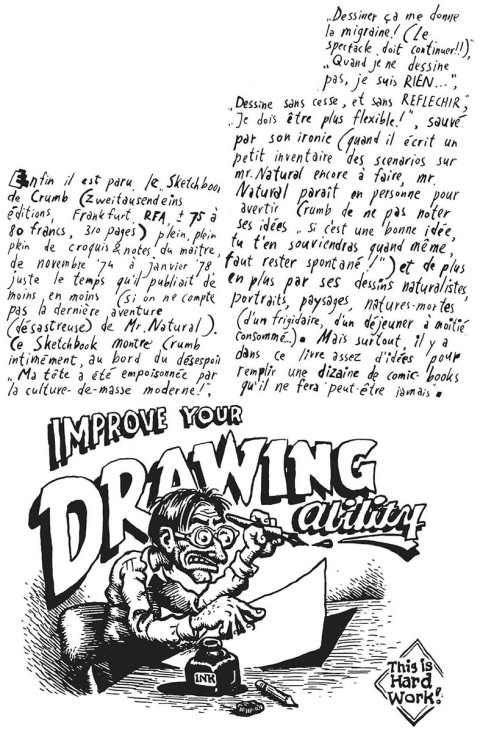 Enfin il est paru, le „Sketchbook
de Crumb (Zweitausendeins
éditions, Frankfurt, RFA, ± 75 à
80 francs, 310 pages) plein, plein
plein de croquis & notes du maître,
de novembre '74 à janvier '78
juste le temps qu'il publiait de
moins en moins (si on ne compte
pas la dernière aventure
(désastreuse) de Mr. Natural).
Ce Sketchbook montre Crumb
intimément, au bord du désespoir
„Ma tête a été empoisonnée par
la culture-de-masse moderne!",
„Dessiner ça me donne
la migraine! (Le
spectacle doit continuer!!)",
„Quand je ne dessine
pas, je suis RIEN...",
„Dessine sans cesse, et sans REFLECHIR",
„Je dois être plus flexible!", sauvé
par son ironie (quand il écrit un
petit inventaire des scenarios sur
mr. Natural encore à faire, mr.
Natural paraît en personne pour
avertir Crumb de ne pas noter
ses idées „si c'est une bonne idée,
tu t'en souviendras quand même,
faut rester spontané!") et de plus
en plus par ses dessins naturalistes,
portraits, paysages, natures-mortes
(d'un frigidaire, d'un déjeuner à moitié
consommé..). Mais surtout, il y a
dans ce livre assez d'idées pour
remplir une dizaine de comic-books
qu'il ne fera peut-être jamais.
IMPROVE YOUR
DRAWING
ability
INK
This is
Hard
Work!